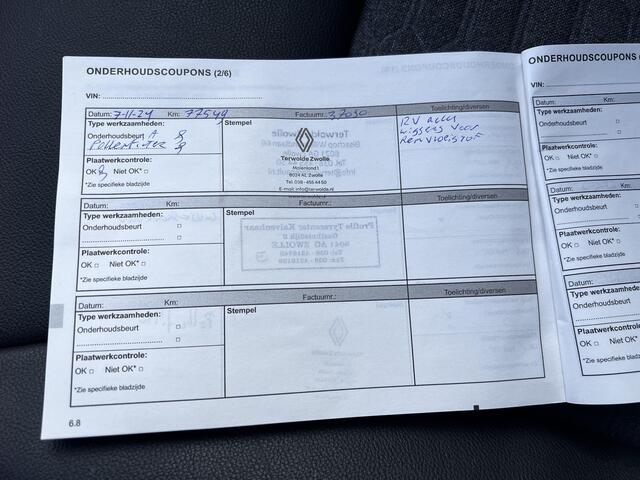 ONDERHOUDSCOUPONS (2/6)
VIN:
Datum: 7-11-24 Km: 77549 Factuurnr.: 37050 Toelichting/diversen
Type werkzaamheden:
Onderhoudsbeurt A
Pollenfilter
Plaatwerkcontrole:
OK Niet OK*
*Zie specifieke bladzijde
Stempel
Terwolde Zwolle
Molenland 1
8024 AL Zwolle
Tel. 038 - 455 44 50
E-mail: info@terwolde.nl
www.terwolde.nl
RV
wissers voor
remvloeistof
Datum: Km: Factuurnr.: Toelichting/diversen
Type werkzaamheden:
Onderhoudsbeurt
Plaatwerkcontrole:
OK Niet OK*
*Zie specifieke bladzijde
Stempel
Profile Tyrecenter Kalvenhaar
ZWOLLE
Datum: Km: Factuurnr.: Toelichting/diversen
Type werkzaamheden:
Onderhoudsbeurt
Plaatwerkcontrole:
OK Niet OK*
*Zie specifieke bladzijde
Stempel
6.8
ONDERHOUDSCOUPONS
VIN:
Datum:
Type werkzaamheden:
Onderhoudsbeurt
Plaatwerkcontrole:
OK Niet OK*
*Zie specifieke bladzijde
Datum:
Type werkzaamheden:
Onderhoudsbeurt
Plaatwerkcontrole:
OK Niet OK*
*Zie specifieke bladzijde
Datum:
Type werkzaamheden:
Onderhoudsbeurt
Plaatwerkcontrole:
OK Niet OK*
*Zie specifieke bladzijde